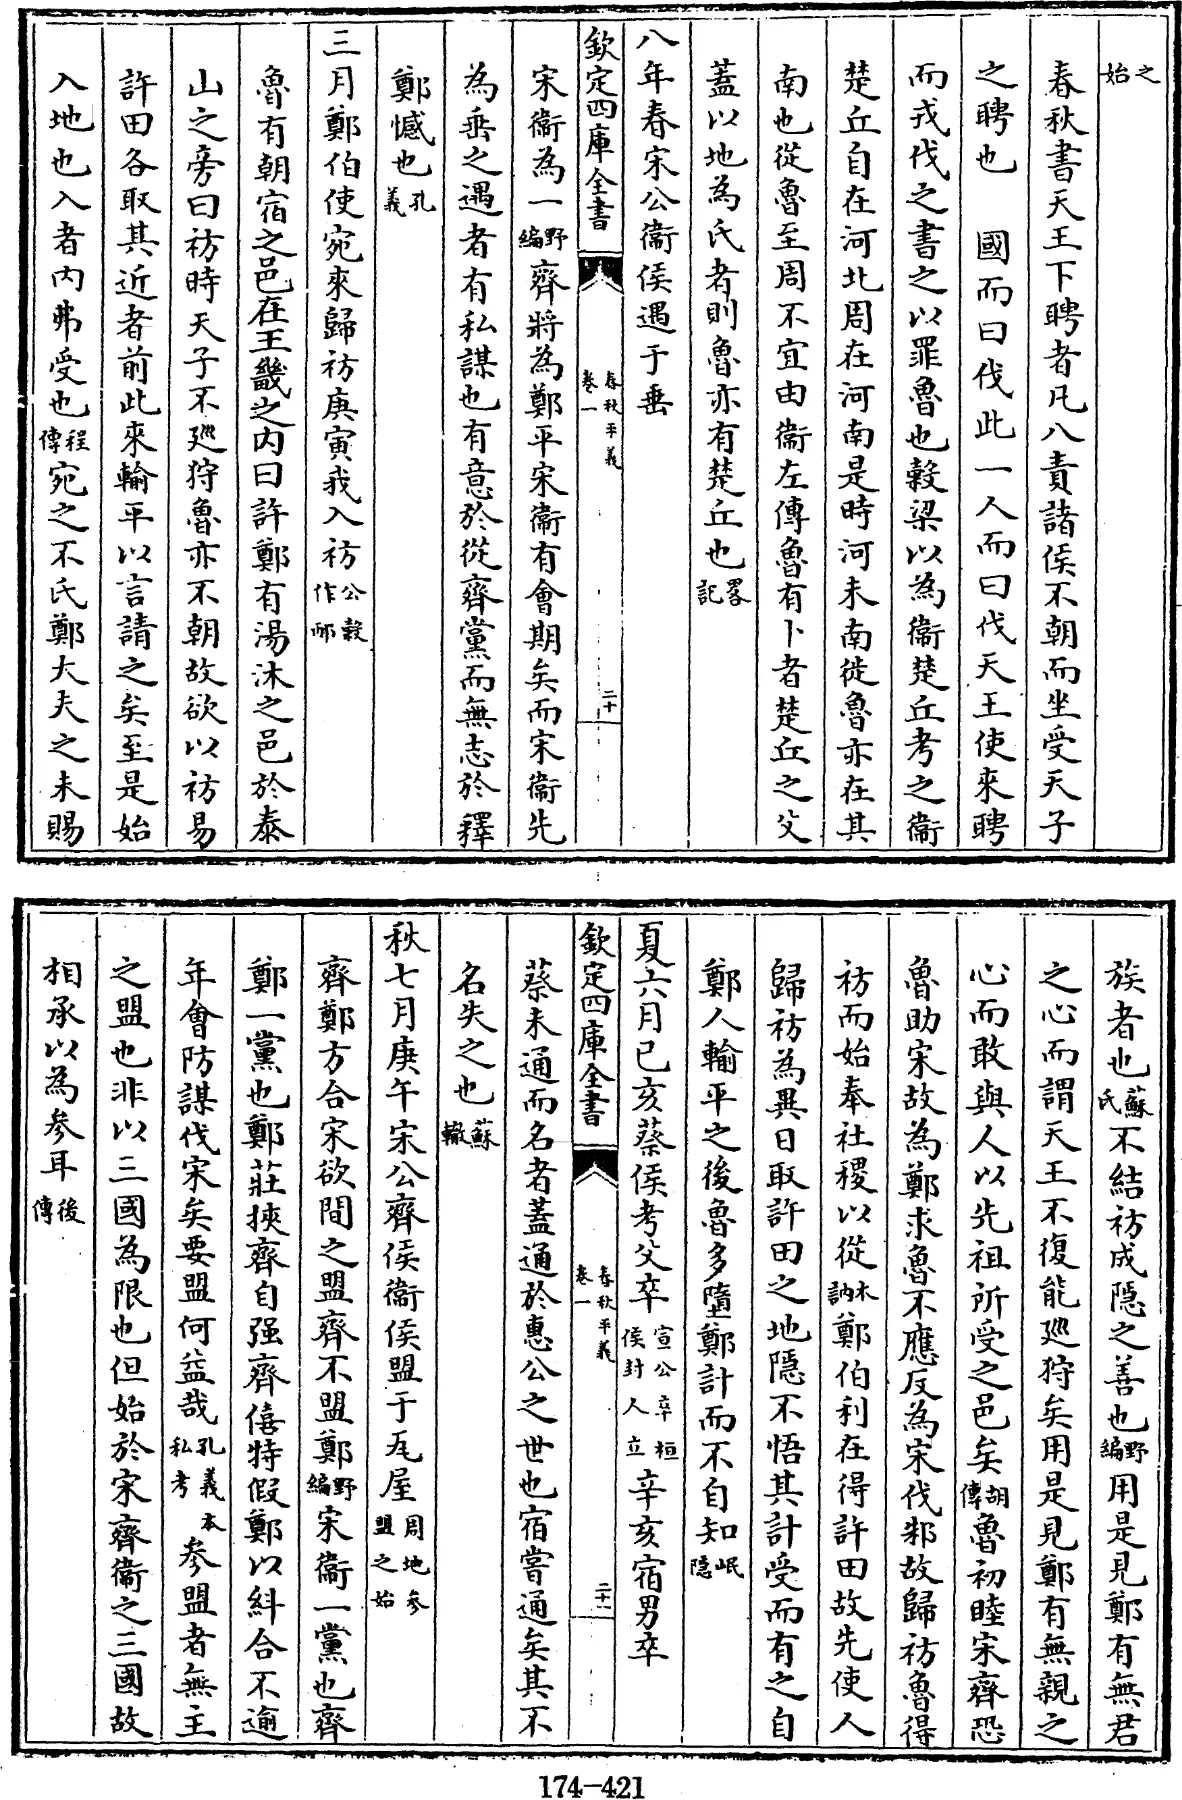 之始
春秋書天王下聘者凡八責諸侯不朝而坐受天子
之聘也　國而曰伐此一人而曰伐天王使來聘
而戎伐之書之以罪魯也穀梁以為衞楚丘考之衞
楚丘自在河北周在河南是時河未南徙魯亦在其
南也從魯至周不宜由衞左傳魯有卜者楚丘之父
蓋以地為氏者則魯亦有楚丘也畧記
八年春宋公衞侯遇于垂
欽定四庫全書　春秋平義　卷一　二十
宋衞為一野編齊將為鄭平宋衞有會期矣而宋衞先
為垂之遇者有私謀也有意於從齊黨而無志於釋
鄭憾也孔義
三月鄭伯使宛來歸祊庚寅我入祊公穀作邴
魯有朝宿之邑在王畿之内曰許鄭有湯沐之邑於泰
山之旁曰祊時天子不廵狩魯亦不朝故欲以祊易
許田各取其近者前此來輸平以言請之矣至是始
入地也入者内弗受也程傳宛之不氏鄭大夫之未賜
族者也蘇氏不結祊成隱之善也野編用是見鄭有無君
之心而謂天王不復能廵狩矣用是見鄭有無親之
心而敢與人以先祖所受之邑矣胡傳魯初睦宋齊恐
魯助宋故為鄭求魯不應反為宋伐邾故歸祊魯得
祊而始奉社稷以從木訥鄭伯利在得許田故先使人
歸祊為異日取許田之地隱不悟其計受而有之自
鄭人輸平之後魯多墮鄭計而不自知岷隱
夏六月己亥蔡侯考父卒宣公卒桓侯封人立辛亥宿男卒
欽定四庫全書　春秋平義　卷一　二十一
蔡未通而名者蓋通於惠公之世也宿嘗通矣其不
名失之也蘇轍
秋七月庚午宋公齊侯衞侯盟于瓦屋周地參盟之始
齊鄭方合宋欲間之盟齊不盟鄭野編宋衞一黨也齊
鄭一黨也鄭莊挾齊自强齊僖特假鄭以糾合不逾
年會防謀伐宋矣要盟何益哉孔義本私考參盟者無主
之盟也非以三國為限也但始於宋齊衞之三國故
相承以為參耳後傳
174-421